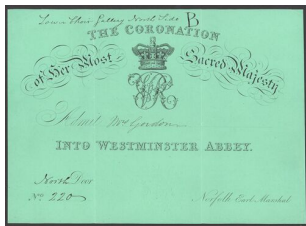 Lower Choir Gallery North Side B
THE CORONATION
of Her Most Sacred Majesty
VR
Admit Mr Gordon
INTO WESTMINSTER ABBEY.
North Door
No. 220
Norfolk Earl Marshal